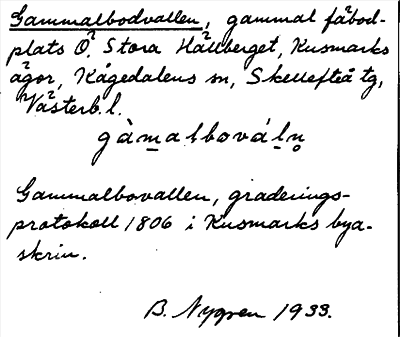 Gammalbodvallen, gammal fäbod-
plats Ö. Stora Hällberget, Kusmarks
ägor, Kågedalens sn, Skellefteå tg,
Västerb. l.
gàmalbovál̥n̥
Gammalbovallen, graderings-
protokoll 1806 i Kusmarks bya-
skrin.
B. Nygren 1933.